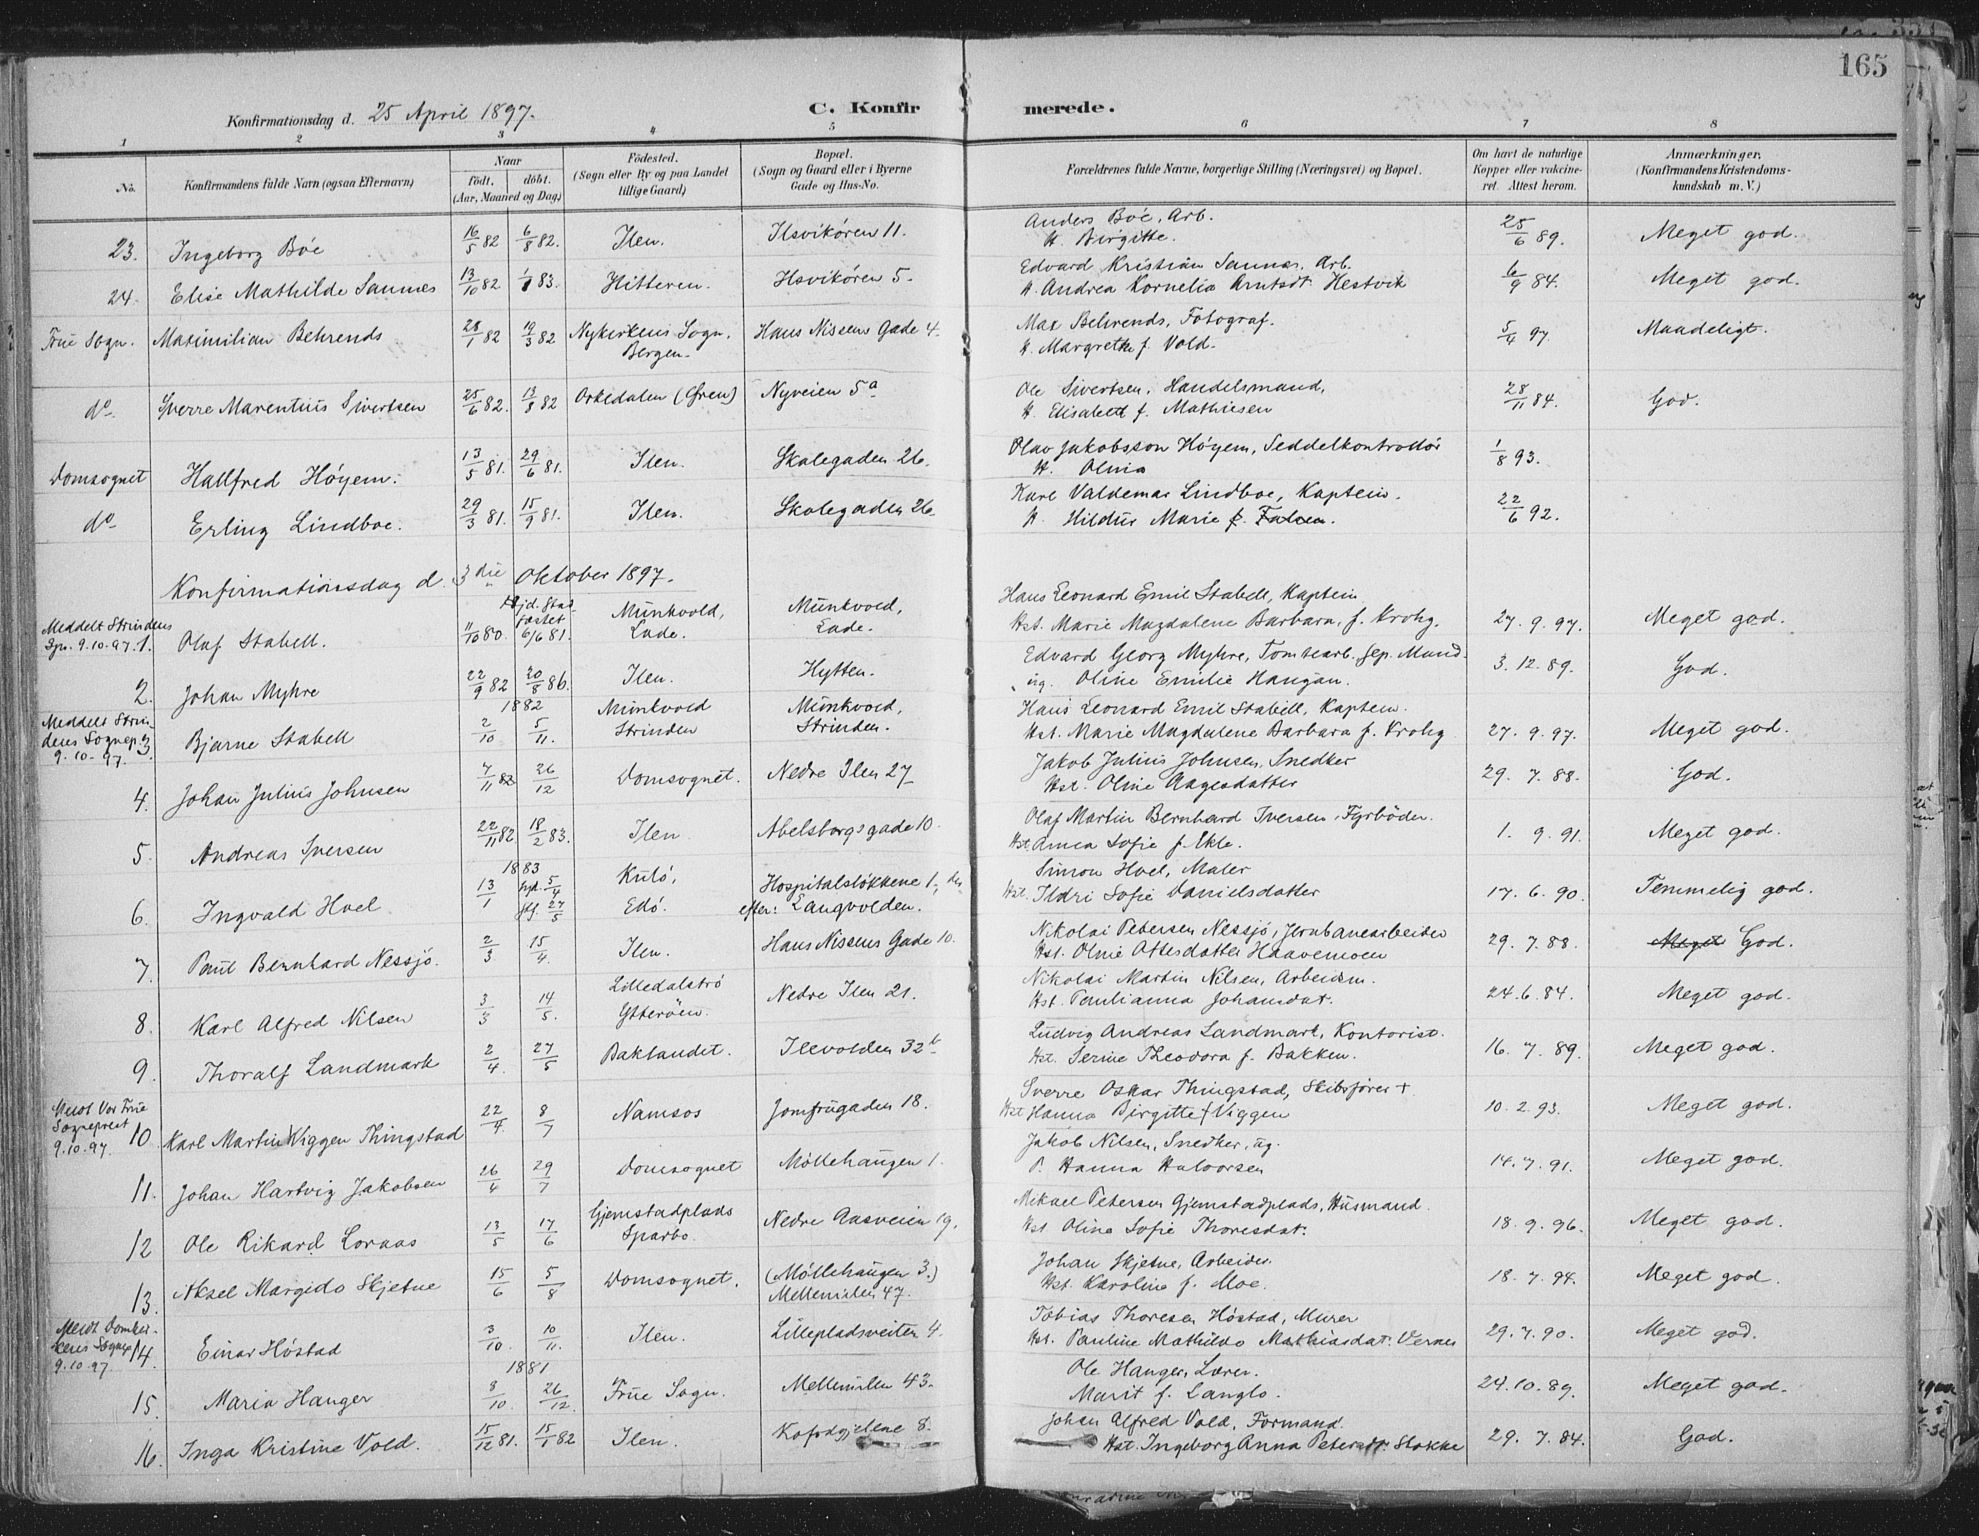 165
Konfirmationsdag d. 25 April 1897. C. Konfirmerede.
1 2 3 4 5 6 7 8
No. Konfirmandens fulde Navn (ogsaa Efternavn) Naar født. døbt. (Aar, Maaned og Dag) Fødested. (Sogn eller By og paa Landet tillige Gaard) Bopæl. (Sogn og Gaard eller i Byerne Gade og Hus-No. Forældrenes fulde Navne, borgerlige Stilling (Næringsvei) og Bopæl. Om havt de naturlige Kopper eller vakcineret. Attest herom. Anmærkninger. (Konfirmandens Kristendomskundskab m. V.)
23. Ingeborg Böe 16/5 82 6/8 82. Ilen. Ilsvikören 11. Anders Böe, Arb. H. Birgitte. 25/6 89. Meget god.
24. Elise Mathilde Sannes 13/10 82 1/1 83. Hitteren. Ilsvikören 5. Edvard Kristian Sannes, Arb. H. Andrea Kornelia Arntsdt. Hestvik 6/9 84. Meget god.
Frue Sogn. Maximilian Behrends 28/1 82 19/3 82 Nykirkens Sogn, Bergen. Hans Nissens Gade 4. Max Behrends, Fotograf. H. Margrethe f. Vold. 5/4 97. Maadeligt.
do Sverre Marentius Sivertsen 25/6 82. 13/8 82 Orkedalen (Øren) Nyveien 5a Ole Sivertsen, Handelsmand, H. Elisabeth f. Mathiesen 28/11 84. God.
Domsognet Hallfred Höyem. 13/5 81. 29/6 81. Ilen. Skolegaden 26. Olav Jakobsson Höyem, Seddelkontrollör H. Olina 1/8 93.
do Erling Lindboe. 29/3 81. 15/9 81. Ilen. Skolegaden 26. Karl Valdemar Lindboe, Kaptein. H. Hildur Marie f. Falsen. 22/6 92.
Konfirmationsdag d. 3die Oktober 1897.
Meddelt Strindens Spr. 9.10.97. 1. Olaf Stabell. 11/10 80. Hjd. Stadfæstet 6/6 81. Munkvold, Lade. Munkvold, Lade. Hans Leonard Emil Stabell, Kaptein Hst. Marie Magdalene Barbara, f. Krohg. 27. 9. 97. Meget god.
2. Johan Myhre 22/9 82 20/8 86. Ilen. Hytten. Edvard Georg Myhre, Tomtearb. sep. Mand. ug. Oline Emilie Haugan. 3. 12. 89. God.
1882
Meddelt Strindens Sognepr. 9.10.97. 3 Bjarne Stabell 2/10 5/11. Munkvold Strinden Munkvold, Strinden. Hans Leonard Emil Stabell, Kaptein. Hst. Marie Magdalene Barbara f. Krohg 27. 9. 97. Meget god.
4. Johan Julius Johnsen 7/11 82 26/12 Domsognet. Nedre Ilen 27 Jakob Julius Johnsen, Snedker Hst. Oline Aagesdatter 29. 7. 88. God.
5. Andreas Iversen 22/11 82 18/2 83. Ilen. Abelsborgsgade 10. Olaf Martin Bernhard Iversen, Fyrböder. Hst. Anna Sofie f. Ekle. 1. 9. 91. Meget god.
1883
6. Ingvald Hoel 13/1 5/4 27/5 Kulö, Edö. Hospitalslökkene 1, derefter: Langvolden. Simon Hoel, Maler Hst. Ildri Sofie Danielsdatter 17. 6. 90. Temmelig god.
7. Paul Bernhard Nessjö. 2/3 15/4. Ilen. Hans Nissens Gade 10. Nikolai Petersen Nessjö, Jernbanearbeider Hst. Oline Ottesdatter Haavemoen 29. 7. 88. Meget God.
8. Karl Alfred Nilsen 3/3 14/5. Lilledalströ Ytteröen. Nedre Ilen 21. Nikolai Martin Nilsen, Arbeidsm. Hst. Paulianna Johansdat. 24. 6. 84. Meget god.
9. Thoralf Landmark 2/4. 27/5 Baklandet. Ilevolden 32b Ludvig Andreas Landmark, Kontorist. Hst. Serine Theodora f. Bakken. 16. 7. 89. Meget god.
Medt Vor Frue Sogneprest 9.10.97. 10. Karl Martin Viggen Thingstad 22/4 8/7 Namsos Jomfrugaden 18. Sverre Oskar Thingstad, Skibsförer + Hst. Hanna Birgitte f. Viggen 10. 2. 93. Meget god.
11. Johan Hartvig Jakobsen 26/4 29/7 Domsognet Möllehaugen 1. Jakob Nilsen, Snedker, ug. P. Hanna Halvorsen 14. 7. 91. Meget god.
12 Ole Rikard Loraas 13/5 17/6 Gjemstadplads Sparbo. Nedre Aasveien 19. Mikael Petersen Gjemstadplads, Husmand. Hst. Oline Sofie Thoresdat. 18. 9. 96. Meget god.
13. Aksel Margido Skjetne 15/6 5/8 Domsognet. (Möllehaugen 3.) Mellemilen 47. Johan Skjetne, Arbeider. Hst. Karoline f. Moe. 18. 7. 94. Meget god.
Medt Domkirkens Sognepr 9.10.97. 14. Einar Höstad 3/10. 10/11. Ilen. Lillepladsveiten 4. Tobias Thoresen Höstad, Murer Hst. Pauline Mathilde Mathiasdat. Vernes 29. 7. 90. Meget god.
1881
15. Maria Hanger 8/10 26/12. Frue Sogn. Mellemilen 43. Ole Hanger, Lærer. Marit f. Langlo. 24. 10. 89. Meget god.
16. Inga Kristine Vold. 15/12 81. 15/1 82 Ilen. Kofodgjelene 8. Johan Alfred Vold, Formand. Hst. Ingeborg Anna Petersdt. Stokke 29. 7. 84. God.